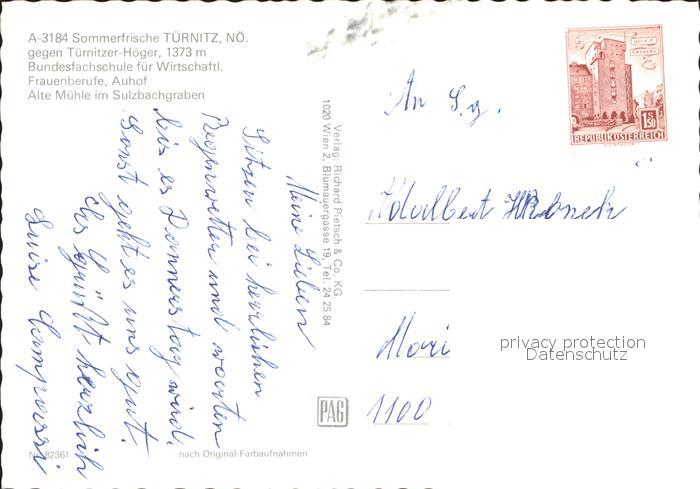 A-3184 Sommerfrische TÜRNITZ, NÖ.
gegen Türnitzer-Höger, 1373 m
Bundesfachschule für Wirtschaftl.
Frauenberufe, Auhof
Alte Mühle im Sulzbachgraben
Meine Lieben
Sitzen bei herrlichen
Regenwetter und warten
bis es Donnerstag wird.
Sonst geht es uns gut.
Es grüßt herzlich
Luise
Verlag: Richard Pietsch & Co. KG
1020 Wien 2, Blumauergasse 19, Tel. 24 25 84
PAG
Nr. 82361
nach Original-Farbaufnahmen
WIEN
ERDBERG
1.50
REPUBLIK ÖSTERREICH
An
Adalbert
1100
privacy protection
Datenschutz